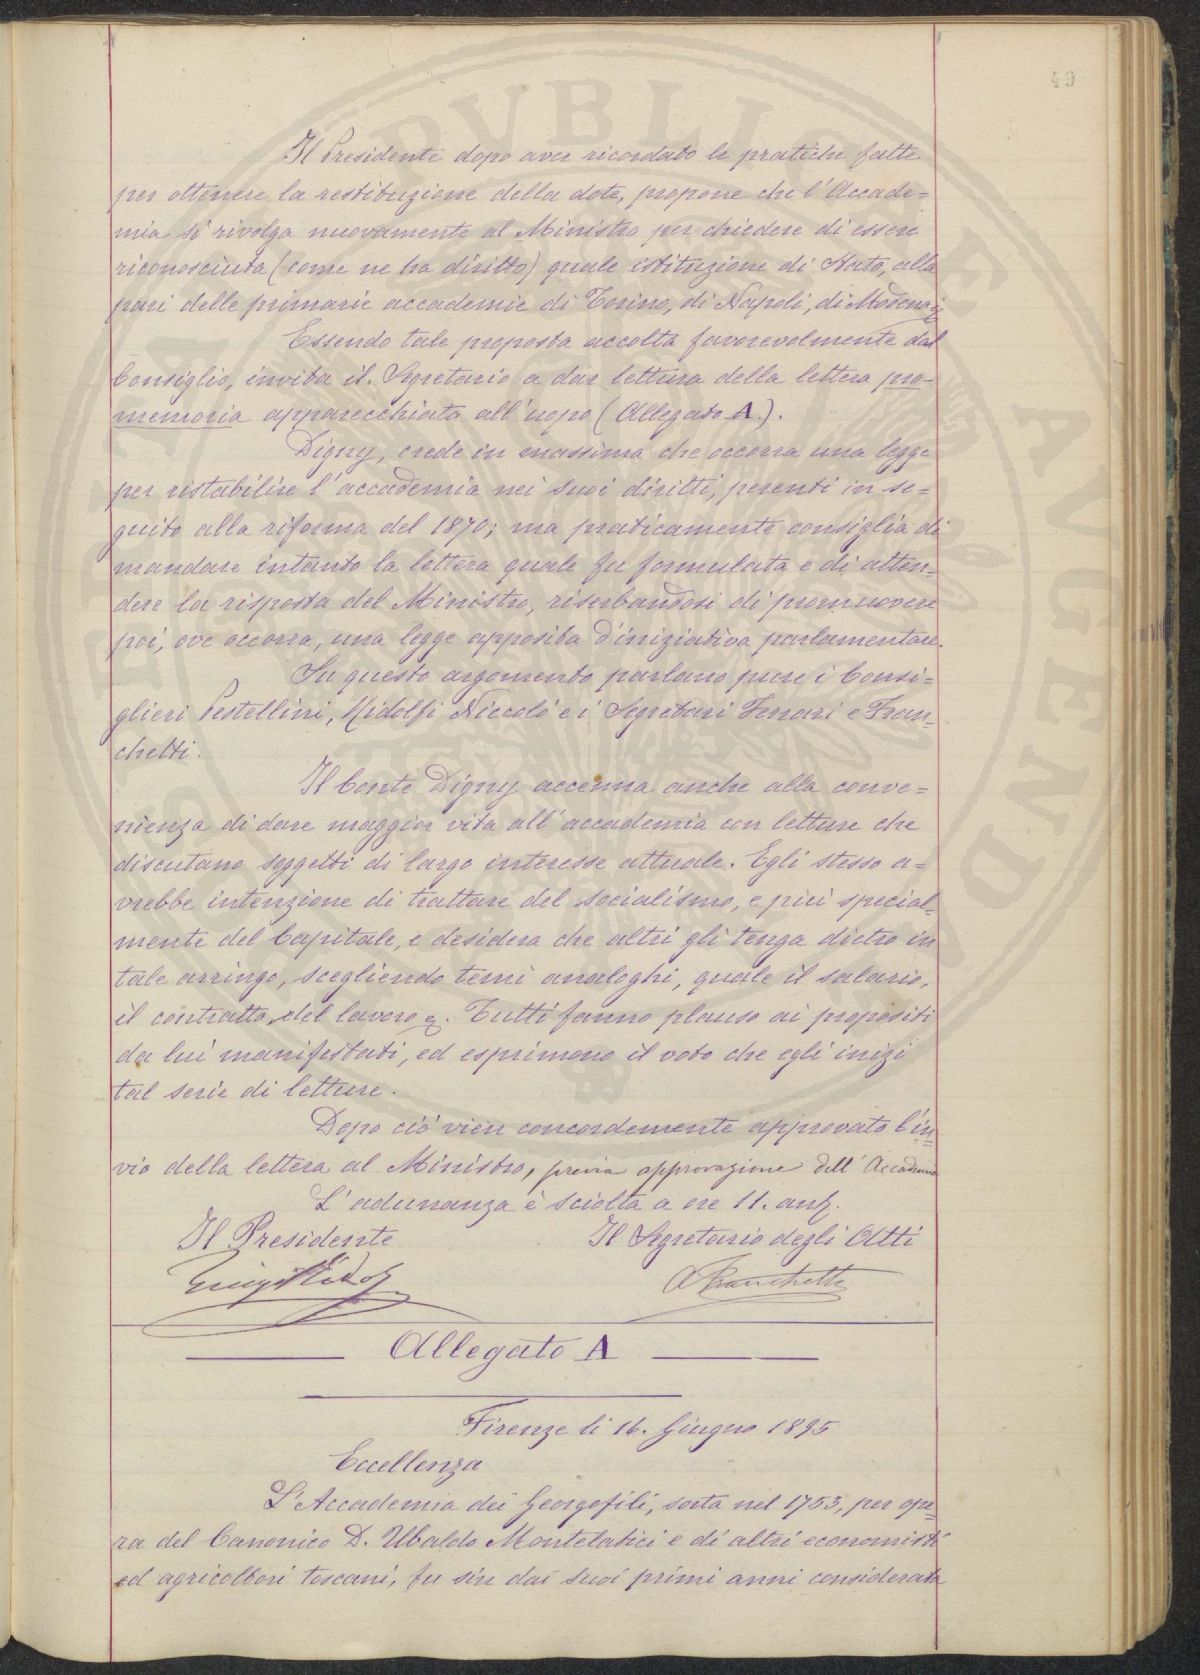 49
Il Presidente dopo aver ricordato le pratiche fatte
per ottenere la restituzione della dote, propone che l'Accade=
mia si rivolga nuovamente al Ministro per chiedere di essere
riconosciuta (come ne ha diritto) quale istituzione di Stato, alla
pari delle primarie accademie di Torino, di Napoli, di Modena &
Essendo tale proposta accolta favorevolmente dal
Consiglio, invita il Segretario a dar lettura della lettera pro-
memoria apparecchiata all'uopo (Allegato A.).
Digny, crede in massima che occorra una legge
per ristabilire l'accademia nei suoi diritti, perenti in se=
guito alla riforma del 1870; ma praticamente consiglia di
mandare intanto la lettera quale fu formulata e di atten=
dere la risposta del Ministro, riserbandosi di promuovere
poi, ove occorra, una legge apposita d'iniziativa parlamentare.
Su questo argomento parlano pure i Consi=
glieri Pestellini, Ridolfi Niccolò e i Segretari Ferrari e Fran=
chetti.
Il Conte Digny accenna anche alla conve=
nienza di dare maggior vita all'accademia con letture che
discutano soggetti di largo interesse attuale. Egli stesso a=
vrebbe intenzione di trattare del socialismo, e più special=
mente del Capitale, e desidera che altri gli tenga dietro in
tale arringo, scegliendo temi analoghi, quale il salario,
il contratto del lavoro &. Tutti fanno plauso ai propositi
da lui manifestati, ed esprimono il voto che egli inizi
tal serie di letture.
Dopo ciò vien concordemente approvato l'in=
vio della lettera al Ministro, previa approvazione dell'Accademia
L'adunanza è sciolta a ore 11. ant.
Il Presidente Il Segretario degli Atti
Luigi Ridolfi A Franchetti
Allegato A
Firenze li 16. Giugno 1895
Eccellenza
L'Accademia dei Georgofili, sorta nel 1753, per ope=
ra del Canonico D. Ubaldo Montelatici e di altri economisti
ed agricoltori toscani, fu sin dai suoi primi anni considerata